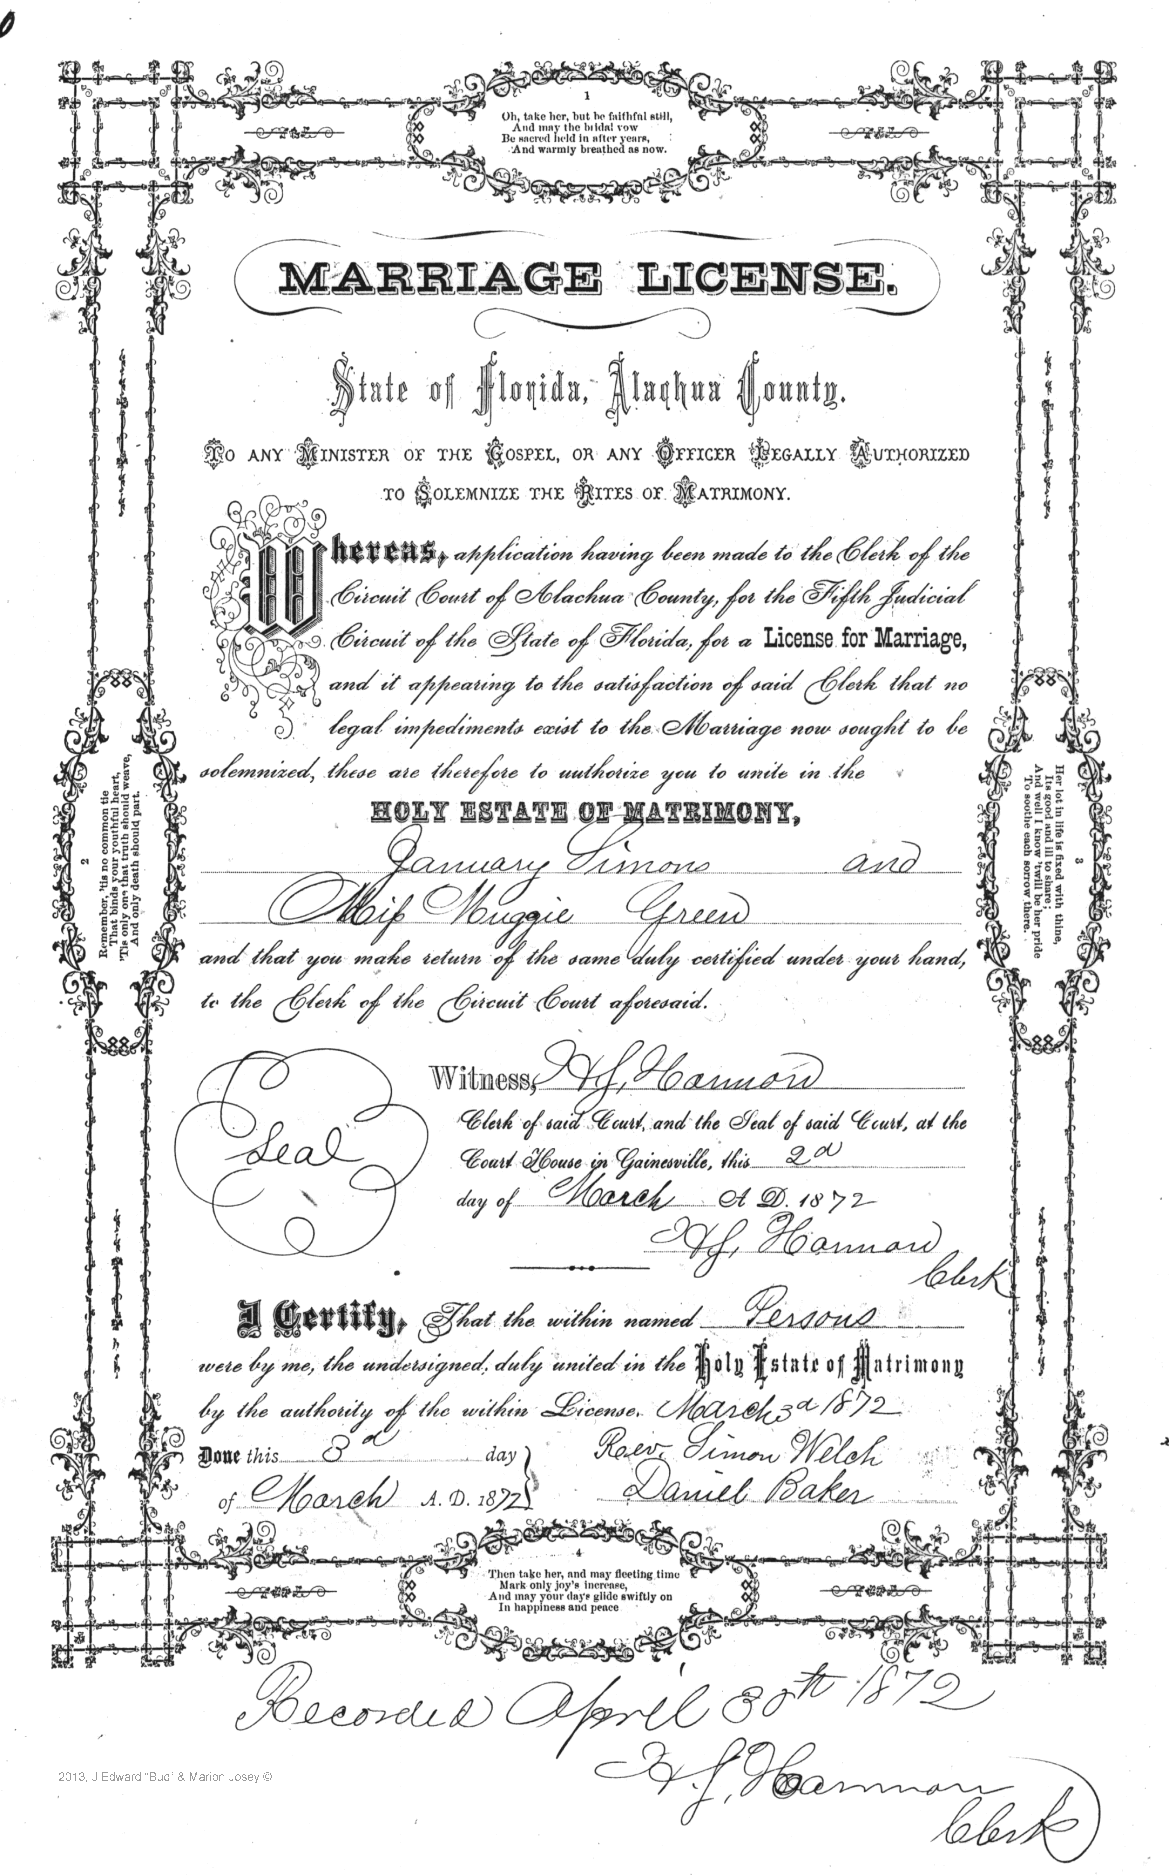 1
Oh, take her, but be faithful still,
And may the bridal vow
Be sacred held in after years,
And warmly breathed as now.
MARRIAGE LICENSE.
State of Florida, Alachua County.
TO ANY MINISTER OF THE GOSPEL, OR ANY OFFICER LEGALLY AUTHORIZED
TO SOLEMNIZE THE RITES OF MATRIMONY.
Whereas, application having been made to the Clerk of the
Circuit Court of Alachua County, for the Fifth Judicial
Circuit of the State of Florida, for a License for Marriage,
and it appearing to the satisfaction of said Clerk that no
legal impediments exist to the Marriage now sought to be
solemnized, these are therefore to authorize you to unite in the
HOLY ESTATE OF MATRIMONY,
January Simons and
Miss Muggie Green
and that you make return of the same duly certified under your hand,
to the Clerk of the Circuit Court aforesaid.
2
Remember, 'tis no common tie
That binds your youthful heart,
'Tis only one that truth should weave,
And only death should part.
3
Her lot in life is fixed with thine,
Its good and ill to share;
And well I know 'twill be her pride
To soothe each sorrow there.
Seal
Witness, Hannon
Clerk of said Court, and the Seal of said Court, at the
Court House in Gainesville, this 2d
day of March A D. 1872
Hannon
Clerk
I Certify, That the within named Persons
were by me, the undersigned, duly united in the Holy Estate of Matrimony
by the authority of the within License. March 3d 1872
Done this 3d day
of March A. D. 1872
Rev. Simon Welch
Daniel Baker
4
Then take her, and may fleeting time
Mark only joy's increase,
And may your days glide swiftly on
In happiness and peace
Recorded April 30th 1872
Hannon
Clerk
2013, J Edward "Bud" & Marion Josey ©